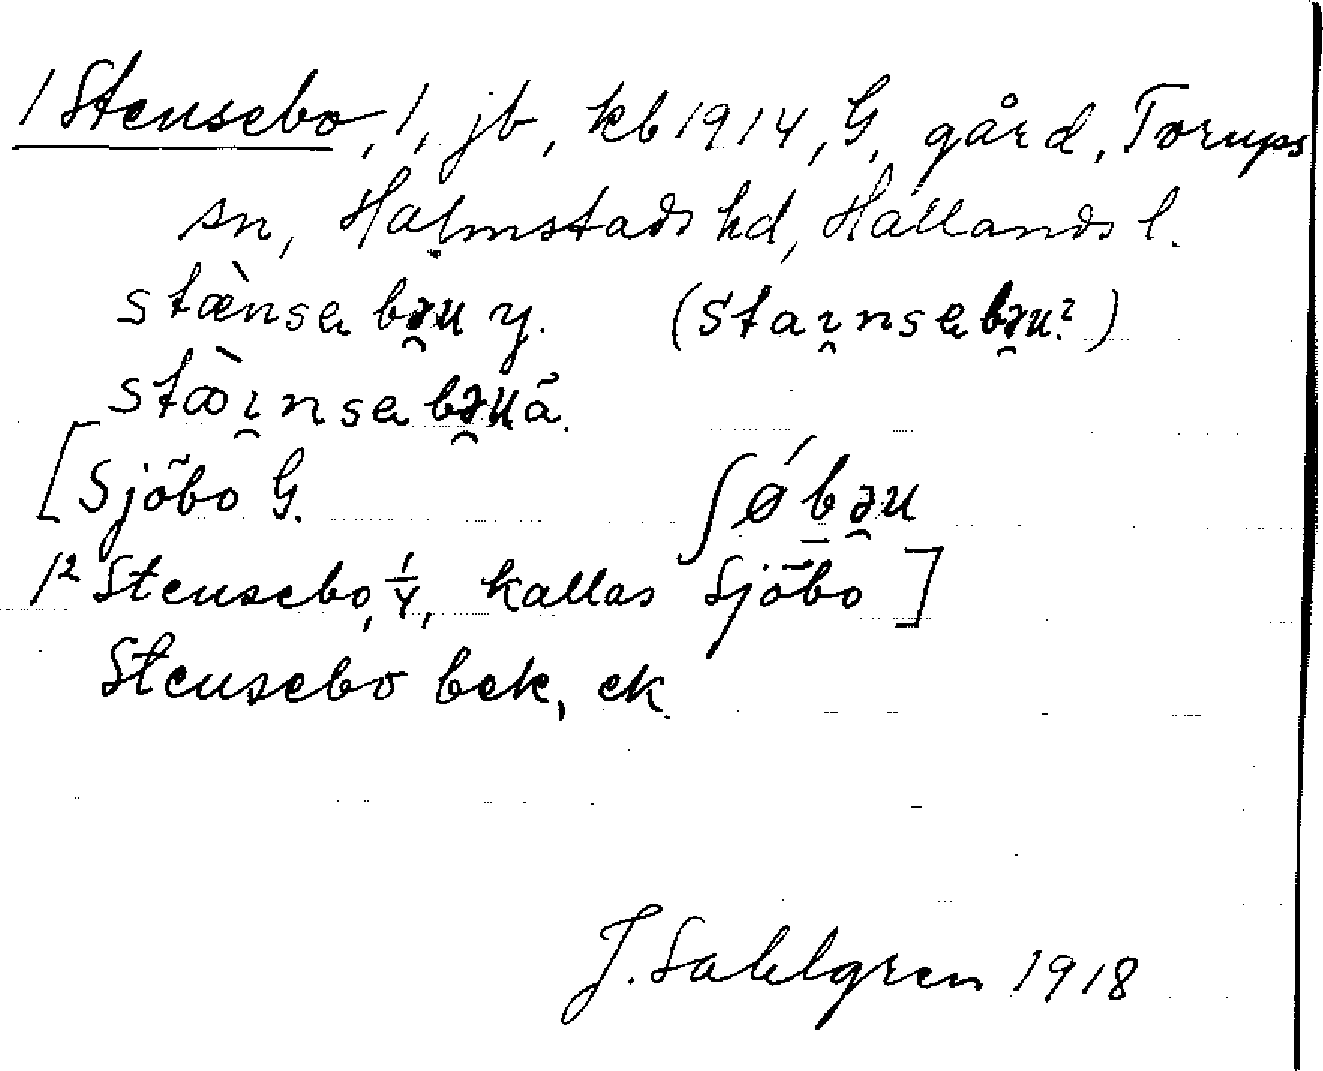 / Stensebo, 1, jb, kb 1914, G, gård, Torups
sn, Halmstads hd, Hallands l.
stæ̀nsabə̯u y. (staı̯nsabə̯u?)
stæ̀ı̯nsabə̯u ä.
[Sjöbo G. ʃǿbə̯u
/² Stensebo, ¼, kallas Sjöbo]
Stensebo bek, ek.
J. Sahlgren 1918